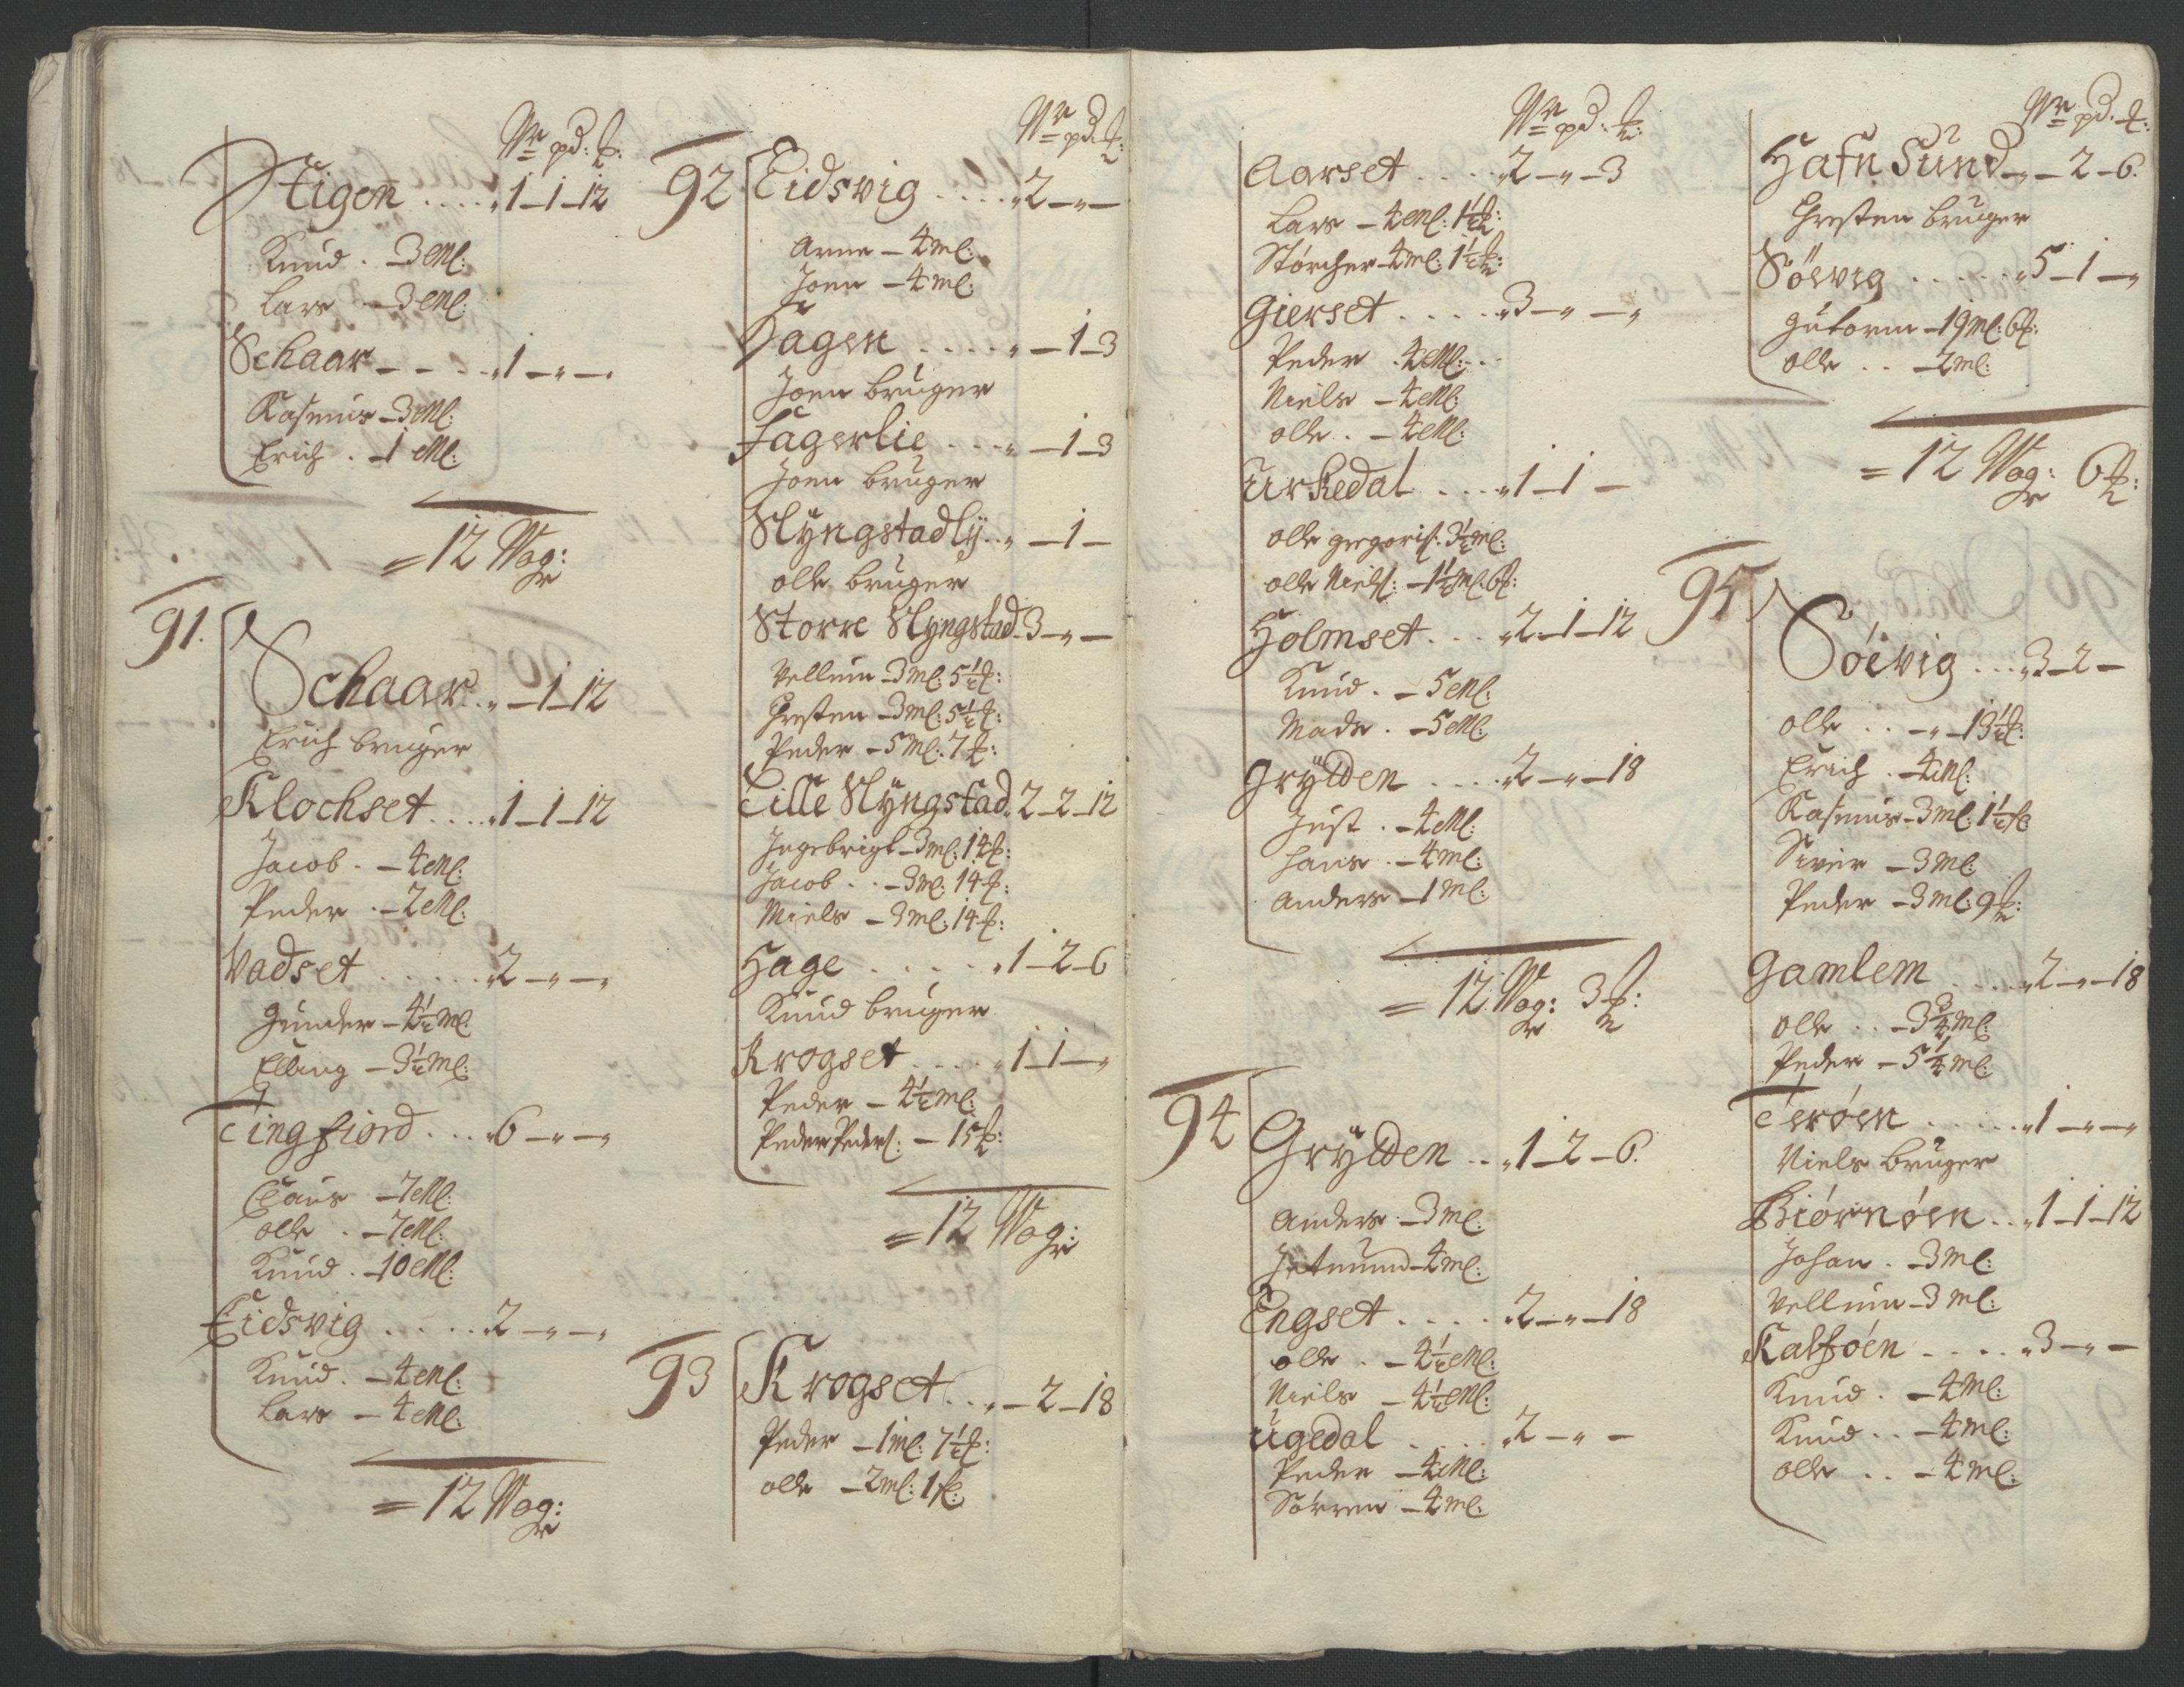 Wr pd: ℔:
Stigen .... „1-1-12
Knud . -3 Ml:
Lars -3 Ml:
Schaar - - - „1-„-„
Rasmus -3 Ml:
Erich . -1 Ml:
= 12 Wog:
91. Schaar .. „-1-12
Erich bruger
Klochset .... „1-1-12
Jacob . -4 Ml:
Peder . -2 Ml:
Vadset ..... „2-„-„
Gunder -4½ Ml:
Elling -3½ Ml:
Tingfiord ... „6-„-„
Claus -7 Ml:
olle . -7 Ml:
Knud . -10 Ml:
Eidsvig ..... 2-„-„
Knud . -4 Ml:
Lars -4 Ml:
= 12 Wog:
Wr pd: ℔:
92 Eidsvig .... „2-„-
Arne -4 Ml:
Joen -4 Ml:
Hagen ..... „-1-3
Joen bruger
Fagerlie .... „-1-3
Joen bruger
Slÿngstadlÿ .. „-1-
olle bruger
Storre Slÿngstad 3-„-
Vellum -3 Ml: 5½ ℔:
Chresten -3 Ml: 5½ ℔:
Peder -5 Ml: 7 ℔:
Lille Slÿngstad 2-2-12
Ingebrigt -3 Ml: 14 ℔:
Jacob .. -3 Ml: 14 ℔:
Niels -3 Ml: 14 ℔:
Hage ..... „1-2-6
Knud bruger
Krogset .... „1-1-„
Peder -4½ Ml:
Peder Peders: -15 ℔:
= 12 Wog:
93 Krogset .. „-2-18
Peder -1 Ml: 7½ ℔:
olle -2 Ml: 1 ℔:
Wr pd: ℔:
Aarset .... „2-„-3
Lars -4 Ml: 1½ ℔:
Störcher -4 Ml: 1½ ℔:
Gierset .... „3-„-„
Peder . 4 Ml: ..
Niels -4 Ml:
olle . -4 Ml:
Urkedal .... „1-1-
olle gregoris: 3½ Ml:
olle Niels: -1½ Ml: 6 ℔:
Holmset ... „2-1-12
Knud . -5 Ml:
Mads . -5 Ml:
Grÿtten .... 2-„-18
Just . -4 Ml:
Hans . -4 Ml:
Anders -1 Ml:
= 12 Wog: 3 ℔:
94 Grÿtten ... „1-2-6.
Anders . -3 Ml:
-4 Ml:
Engset .... „2-„-18
olle . -4½ Ml:
Niels -4½ Ml:
Ugedal .... „2-„-
Peder -4 Ml:
Sörren -4 Ml:
Wr pd. ℔:
Hafn Sund „-2-6.
Chresten bruger
Söevig ..... „5-1-„
Gutorm -19 Ml: 6 ℔:
olle .. -2 Ml:
= 12 Wog: 6 ℔:
95 Söevig ... „3-2-
olle .. -„-13½ ℔:
Erich . -4 Ml:
Rasmus -3 Ml: 1½ ℔
Siver -3 Ml:
Peder -3 Ml: 9 ℔:
Gamlem .... „2-„-18
olle .. -3¾ Ml:
Peder -5¼ Ml:
Terøen ..... „1-„-„
Niels bruger
Biörnöen .. „1-1-12
Johan . -3 Ml:
Vellum -3 Ml:
Kalföen .... „3-„-
Knud . -4 Ml:
Knud .. -4 Ml:
olle .. -4 Ml: